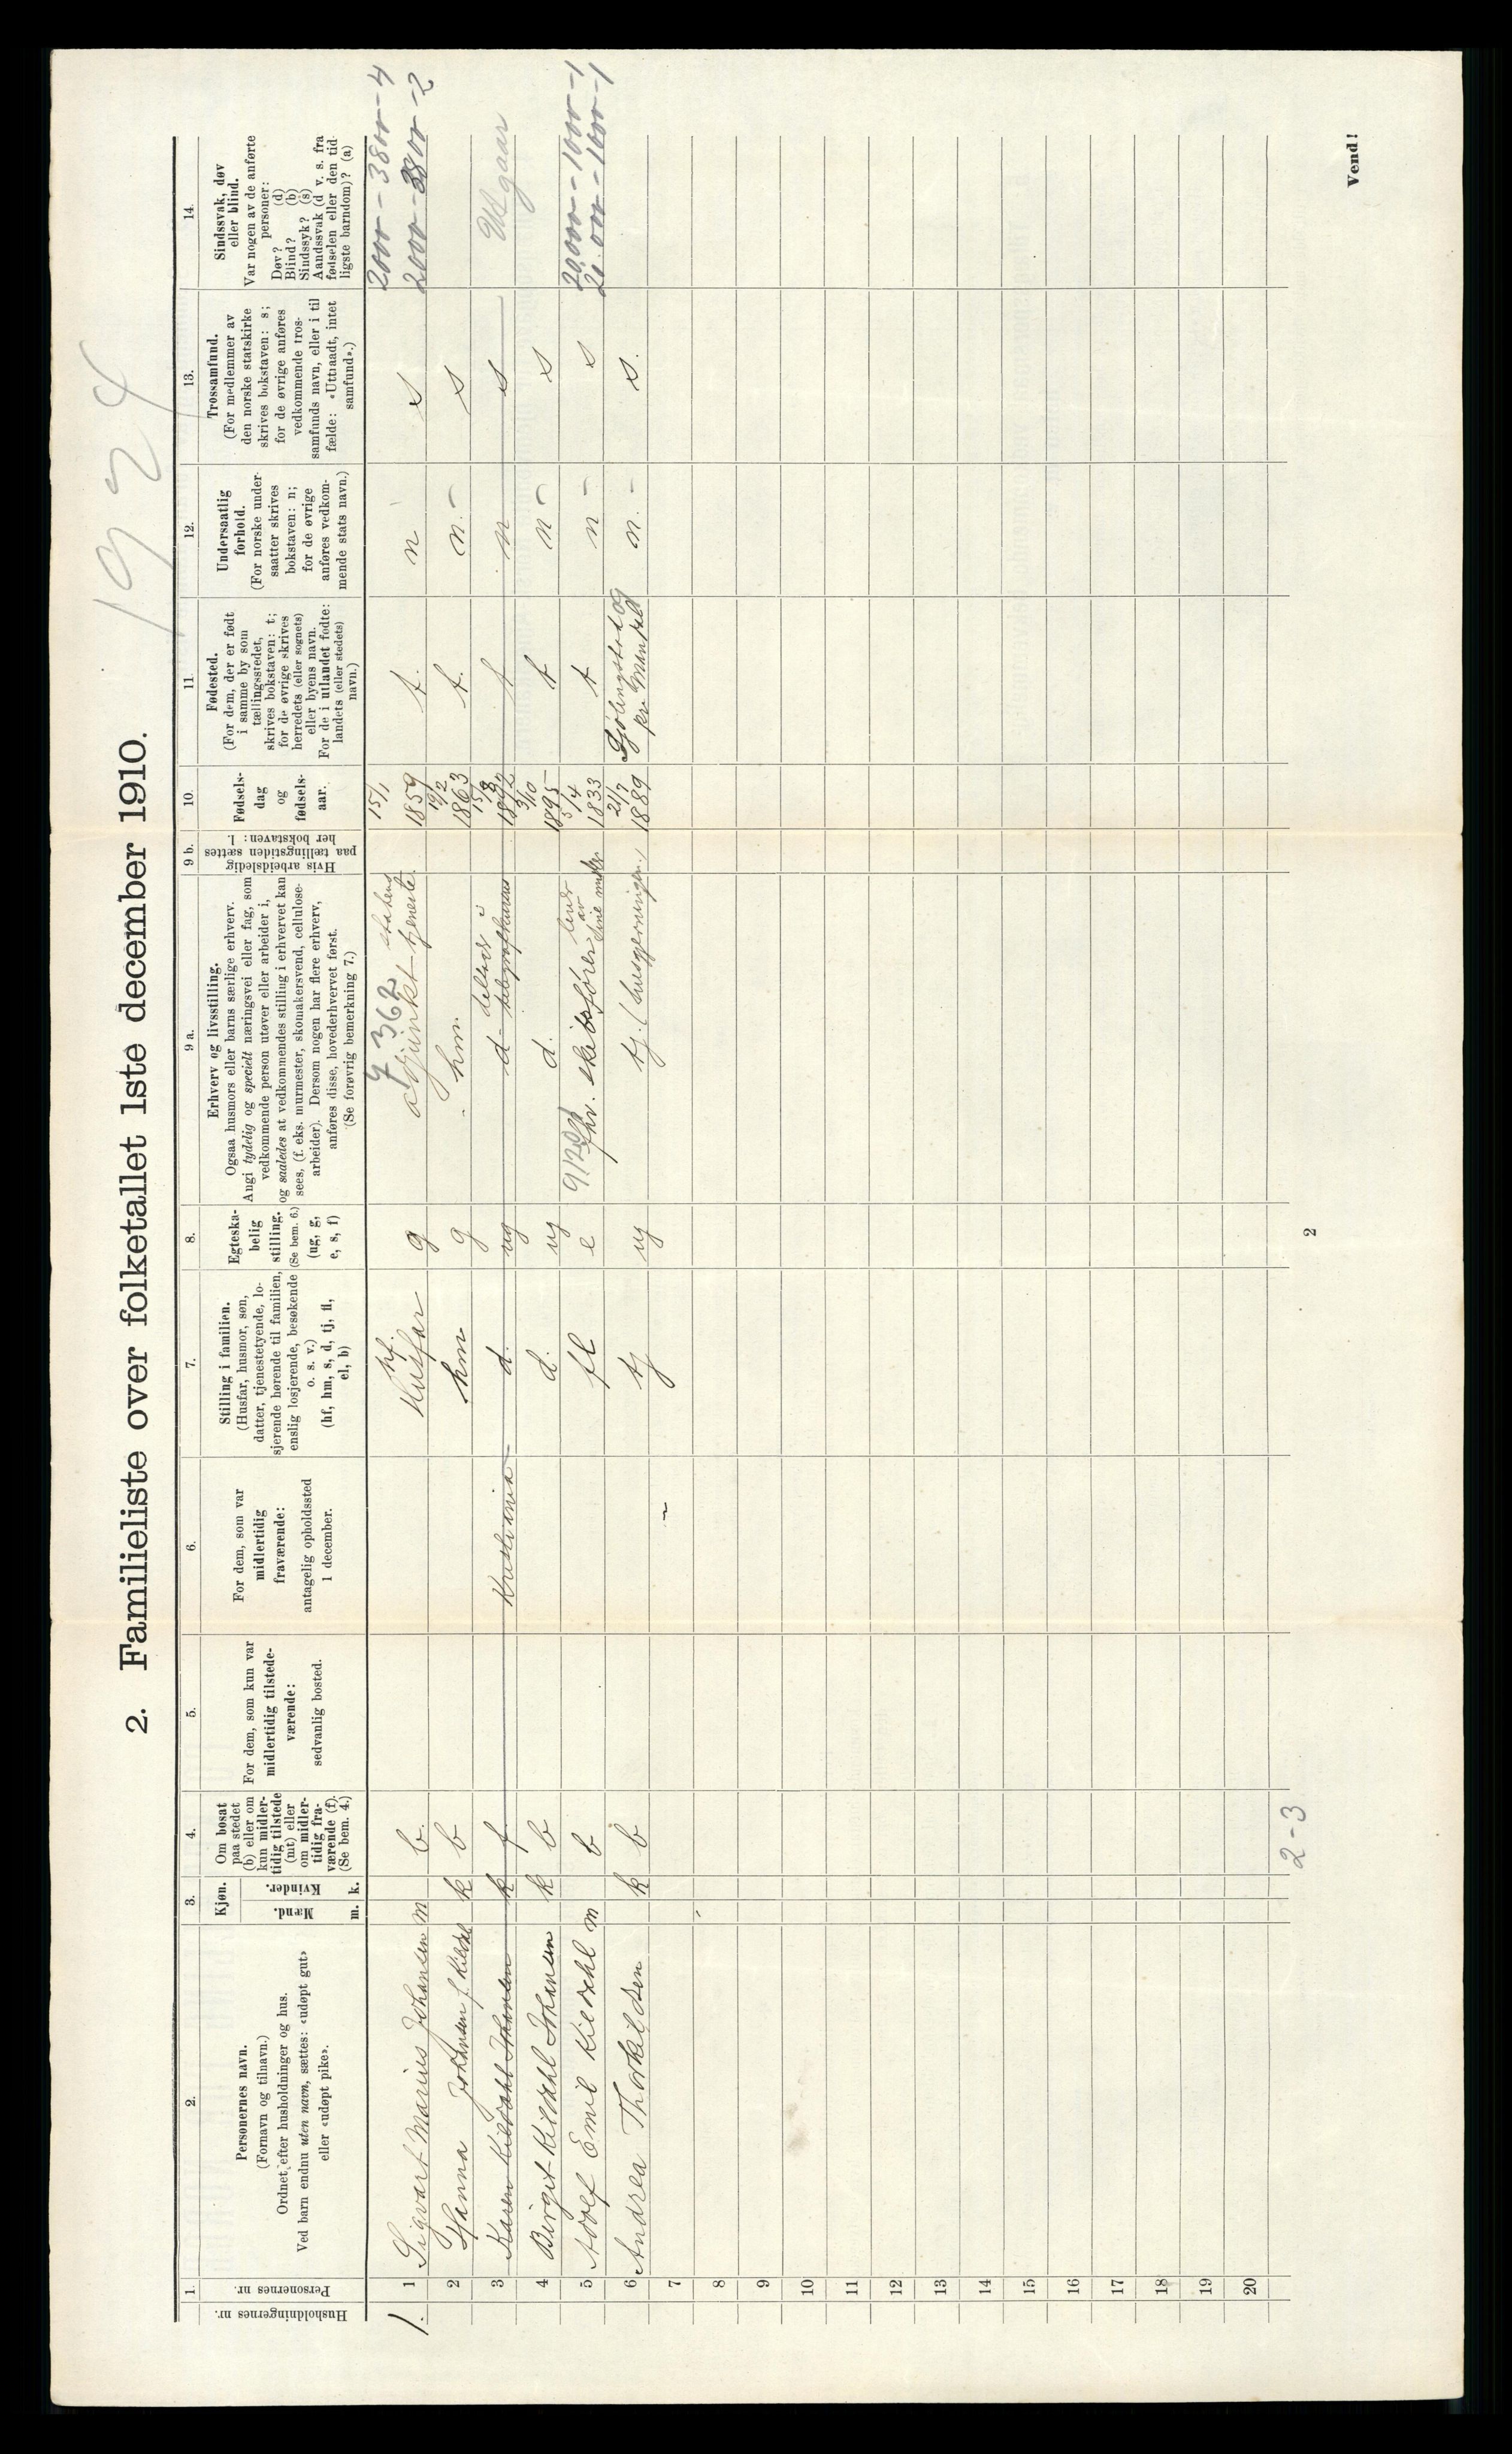 1924
2. Familieliste over folketallet 1ste december 1910.
Husholdningernes nr.
1.
Personernes nr.
2.
Personernes navn.
(Fornavn og tilnavn.)
Ordnet efter husholdninger og hus.
Ved barn endnu uten navn, sættes: «udøpt gut»
eller «udøpt pike».
3.
Kjøn.
Mænd.
Kvinder.
m. k.
4.
Om bosat
paa stedet
(b) eller om
kun midler-
tidig tilstede
(mt) eller
om midler-
tidig fra-
værende (f).
(Se bem. 4.)
5.
For dem, som kun var
midlertidig tilstede-
værende:
sedvanlig bosted.
6.
For dem, som var
midlertidig
fraværende:
antagelig opholdssted
1 december.
7.
Stilling i familien.
(Husfar, husmor, søn,
datter, tjenestetyende, lo-
sjerende hørende til familien,
enslig losjerende, besøkende
o. s. v.)
(hf, hm, s, d, tj, fl,
el, b)
8.
Egteska-
belig
stilling.
(Se bem. 6.)
(ug, g,
e, s, f)
9 a.
Erhverv og livsstilling.
Ogsaa husmors eller barns særlige erhverv.
Angi tydelig og specielt næringsvei eller fag, som
vedkommende person utøver eller arbeider i,
og saaledes at vedkommendes stilling i erhvervet kan
sees, (f. eks. murmester, skomakersvend, cellulose-
arbeider). Dersom nogen har flere erhverv,
anføres disse, hovederhvervet først.
(Se forøvrig bemerkning 7.)
9 b.
Hvis arbeidsledig
paa tællingstiden sættes
her bokstaven: l.
10.
Fødsels-
dag
og
fødsels-
aar.
11.
Fødested.
(For dem, der er født
i samme by som
tællingsstedet,
skrives bokstaven: t;
for de øvrige skrives
herredets (eller sognets)
eller byens navn.
For de i utlandet fødte:
landets (eller stedets)
navn.)
12.
Undersaatlig
forhold.
(For norske under-
saatter skrives
bokstaven: n;
for de øvrige
anføres vedkom-
mende stats navn.)
13.
Trossamfund.
(For medlemmer av
den norske statskirke
skrives bokstaven: s;
for de øvrige anføres
vedkommende tros-
samfunds navn, eller i til
fælde: «Uttraadt, intet
samfund».)
14.
Sindssvak, døv
eller blind.
Var nogen av de anførte
personer:
Døv? (d)
Blind? (b)
Sindssyk? (s)
Aandssvak (d v. s. fra
fødselen eller den tid-
ligste barndom)? (a)
1. 1 Sigvart Marius Johansen m b. hf. Husfar g 9362 adjunkt statens tjeneste. 15/1 1859 t. n s 2000-3800-4
2 Hanna Johansen f. Kildal k b hm g hm. 19/2 1863 t. n. - s 2000-3800-2
3 Karen Kildahl Johansen k f. Kristiania d. ug d deltar i telegrafkursus 15/8 1892 t n s Utgaar
4 Birgit Kildahl Johansen k b d. ug d. 3/10 1895 t n - s
5 Adolf Emil Kildahl m b fl e fhv. skibsfører lever av sine midler 5/4 1833 t n - s 20.000-1000-1
6 Andrea Thorkildsen k b tj ug tj. (husgjerningen) 21/7 1889 n. - s. 20.000-1000-1
7
8
9
10
11
12
13
14
15
16
17
18
19
20
2-3
2
Vend!